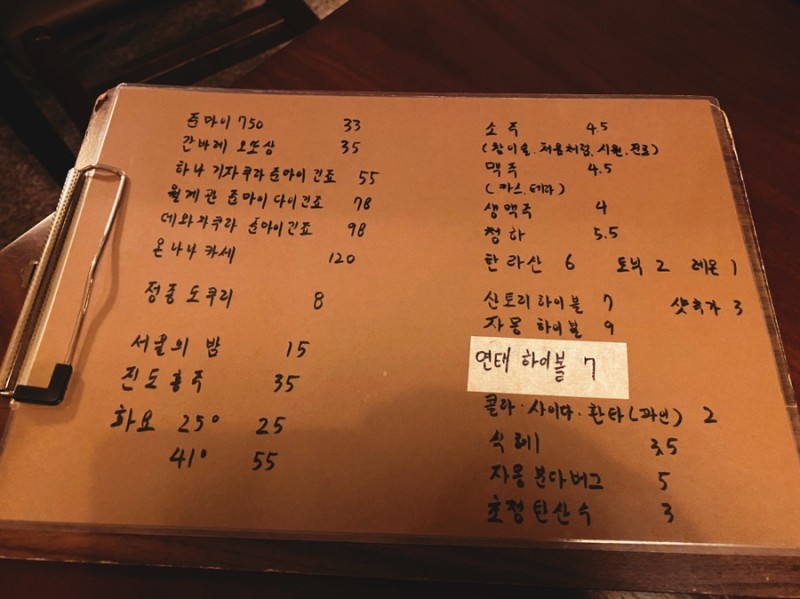 준마이 750 33
간바레 오또상 35
하나 기자쿠라 준마이 긴죠 55
월계관 준마이 다이긴죠 78
데와자쿠라 준마이긴죠 98
온나나카세 120
정종 도쿠리 8
서울의 밤 15
진도 홍주 35
화요 25° 25
41° 55
소주 4.5
(참이슬. 처음처럼, 시원, 진로)
맥주 4.5
(카스. 테라)
생맥주 4
청하 5.5
한라산 6 토닉 2 레몬 1
산토리 하이볼 7 샷추가 3
자몽 하이볼 9
연태 하이볼 7
콜라·사이다·환타(파인) 2
식혜 3.5
자몽 분다버그 5
초정탄산수 3